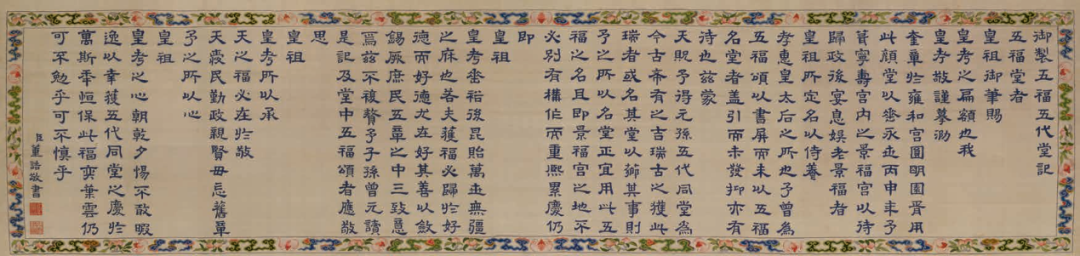 御製五福五代堂記
五福堂者
皇祖御筆賜
皇考之扁額也我
皇考敬謹摹泐
奎章於雍和宮圓明園胥用
此顏堂以垂永世丙申年予
葺寧壽宮內之景福宮以待
歸政後宴息娛老景福者
皇祖所定名以侍養
孝惠皇太后之所也予曾為
五福頌以書屏而未以五福
名堂者蓋引而未發抑亦有
待也茲蒙
天貺予得元孫五代同堂為
今古希有之吉瑞古之獲此
瑞者或名其堂以飾其事則
予之所以名堂正宜用此五
福之名且即景福宮之地不
必別有構作而重熙累慶仍
即
皇祖
皇考垂裕後昆貽萬世無疆
之庥也若夫獲福必歸於好
德而好德尤在好其善以斂
錫厥庶民五章之中三致意
焉茲不複贅予子孫曾元讀
是記及堂中五福頌者應敬
思
皇祖
皇考所以承
天之福必在於敬
天愛民勤政親賢毋忘舊章
予之所以心
皇祖
皇考之心朝乾夕惕不敢暇
逸以幸獲五代同堂之慶於
萬斯年恒保此福奕葉雲仍
可不勉乎可不慎乎
臣董誥敬書